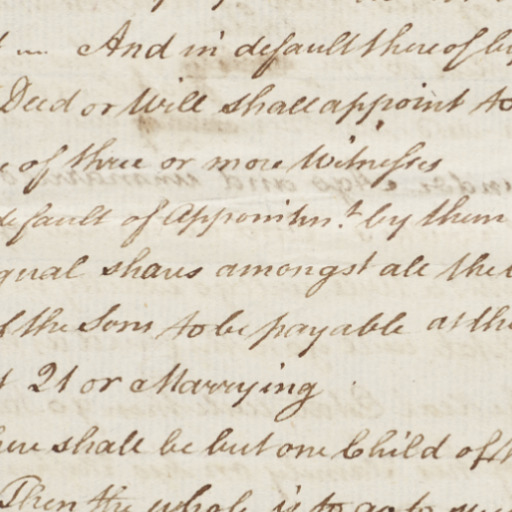 And in default thereof by
Deed or Will shall appoint to
of three or more Witnesses
default of Appointm.t by them
equal shares amongst all the
of the Sons to be payable at the
21 or Marrying
shall be but one Child of
Then the whole is to go to